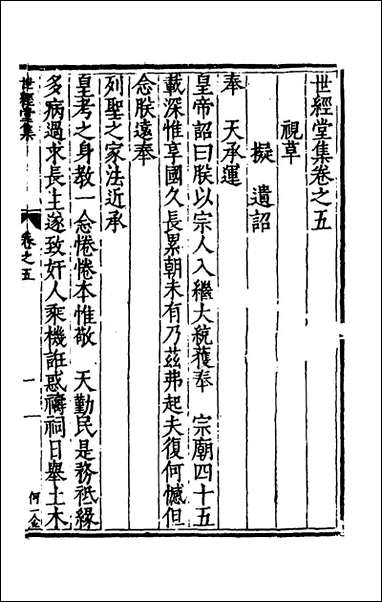 世經堂集卷之五
視草
擬遺詔
奉　天承運
皇帝詔曰朕以宗人入繼大統獲奉　宗廟四十五
載深惟享國久長累朝未有乃茲弗起夫復何憾但
念朕遠奉
列聖之家法近承
皇考之身教一念惓惓本惟敬　天勤民是務祇緣
多病過求長生遂致奸人乘機誑惑禱祠日舉土木
世經堂集
卷之五
一
何一金